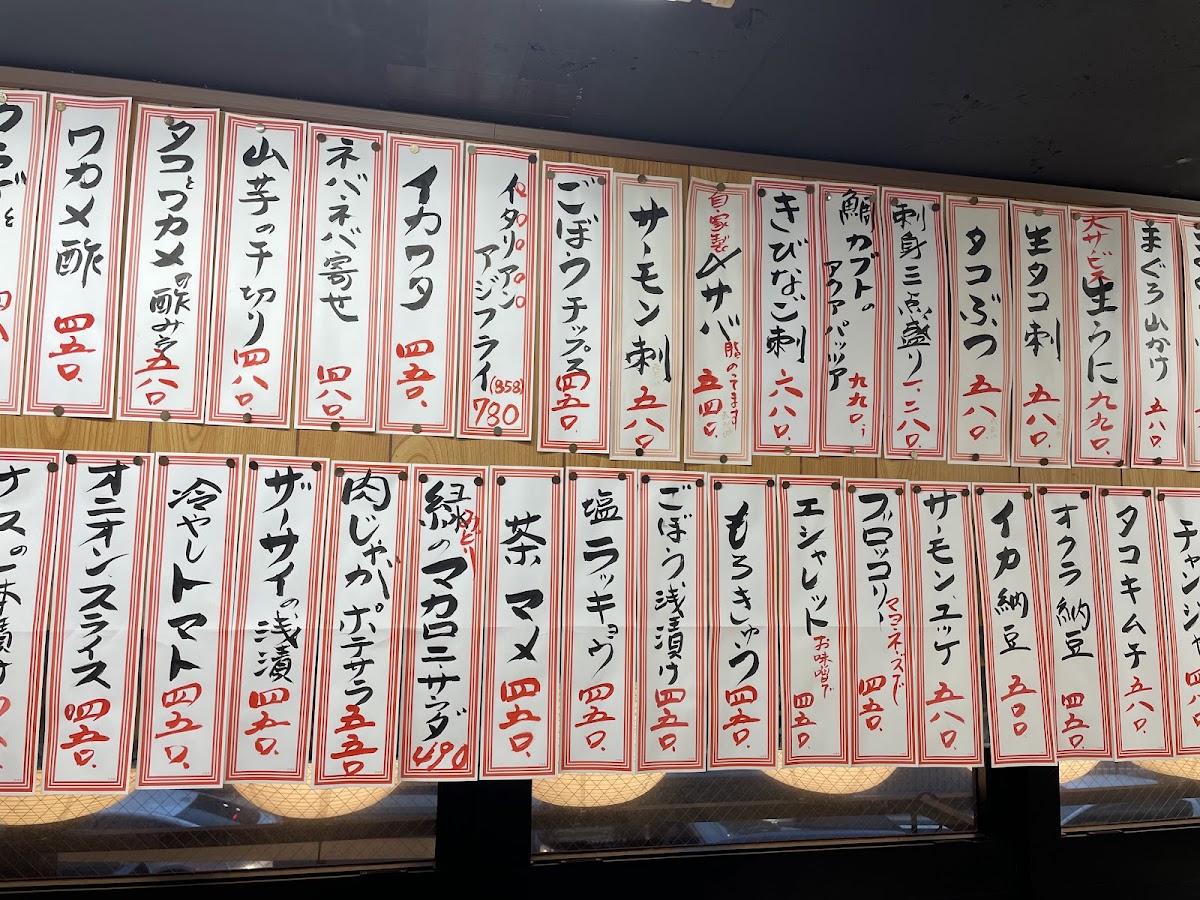 ワカメ酢 四五〇、
タコとワカメの酢みそ 五八〇、
山芋の千切り 四八〇、
ネバネバ寄せ 四八〇、
イカワタ 四五〇、
イタリアンアジフライ (858) 780
ごぼうチップス 四五〇、
サーモン刺 五八〇、
自家製〆サバ 脂のってます 五四〇、
きびなご刺 六八〇、
鯛カブトのアクアパッツァ 九九〇、
刺身三点盛り 一、二八〇、
タコぶつ 五八〇、
生タコ刺 五八〇、
大サービス 生うに 九九〇、
まぐろ山かけ 五八〇、
オニオンスライス 四五〇、
冷やしトマト 四五〇、
ザーサイの浅漬 四五〇、
肉じゃがポテサラ 五五〇
緑のマカロニサラダ 490
茶マメ 四五〇、
塩ラッキョウ 四五〇、
ごぼう浅漬け 四五〇、
もろきゅう 四五〇、
エシャレット お味噌で 四五〇、
ブロッコリー マヨネーズで 四五〇、
サーモンユッケ 五八〇、
イカ納豆 五〇〇、
オクラ納豆 四五〇、
タコキムチ 五八〇、
チャンジャ